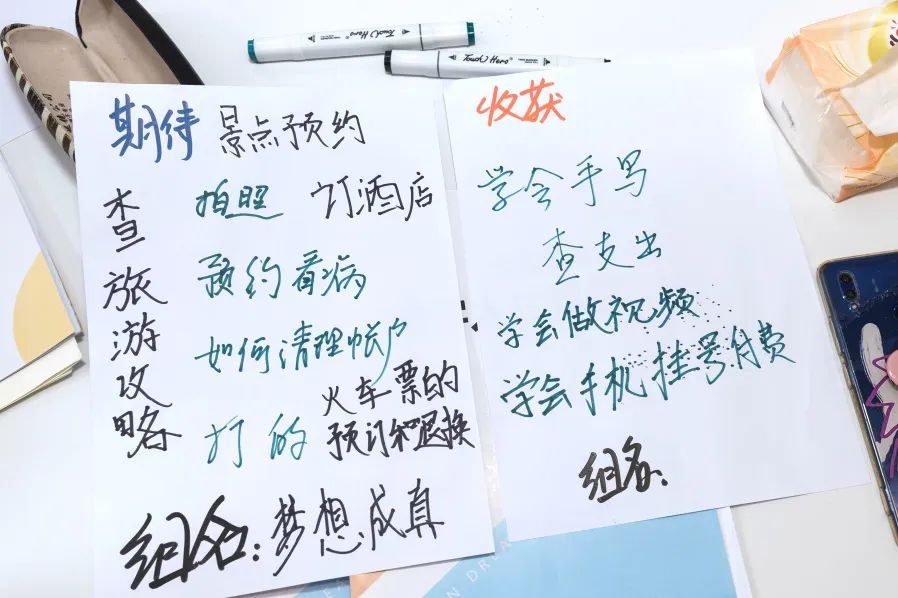 Touch Hero
Touch Hero
期待 景点预约
查旅游攻略
拍照 订酒店
预约看病
如何清理帐户
打的 火车票的
预订和退换
组名:梦想成真
收获
学会手写
查支出
学会做视频
学会手机挂号付费
组名: